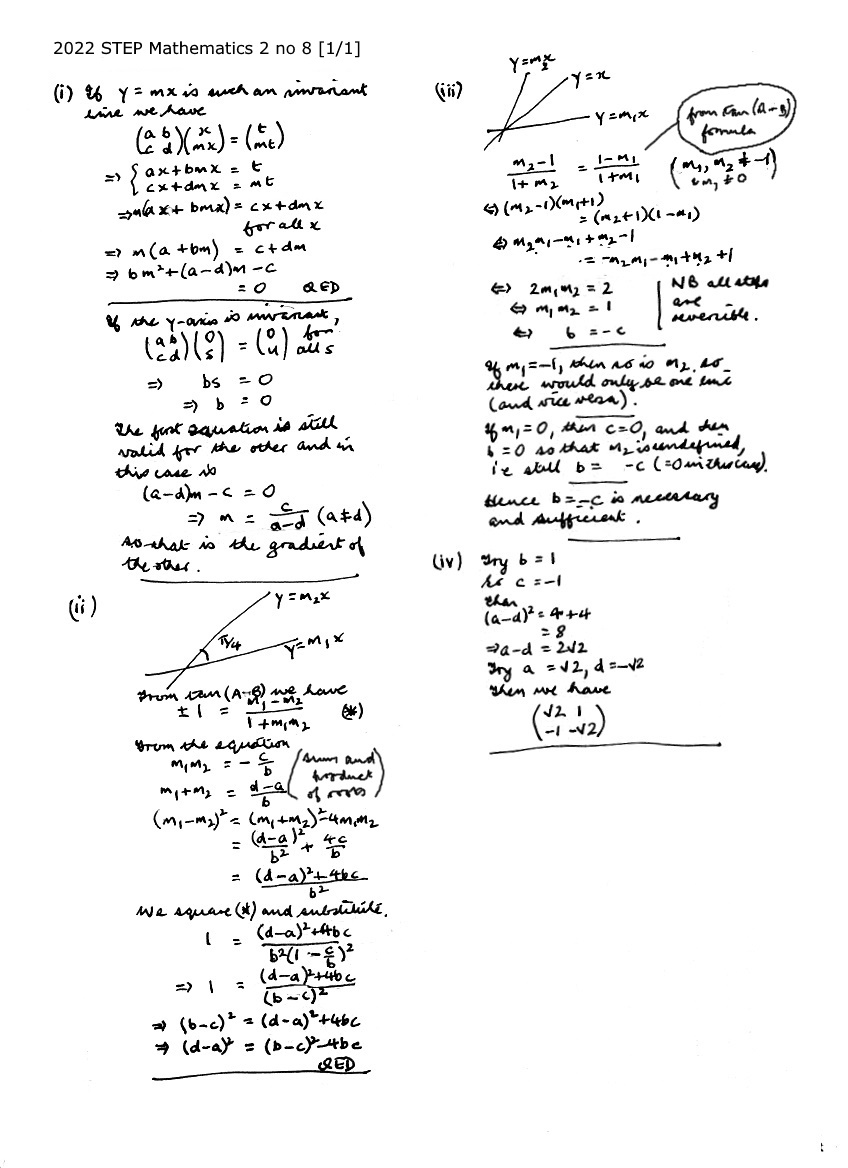 2022 STEP Mathematics 2 no 8 [1/1]
(i) If y = mx is such an invariant
line we have
(a b
c d)(x
mx) = (t
mt)
⇒ {ax + bmx = t
cx + dmx = mt
⇒ m(ax + bmx) = cx + dmx
for all x
⇒ m(a + bm) = c + dm
⇒ bm² + (a-d)m - c
= 0 QED
If the y-axis is invariant,
(a b
c d)(0
s) = (0
u) for
all s
⇒ bs = 0
⇒ b = 0
The first equation is still
valid for the other and in
this case is
(a-d)m - c = 0
⇒ m = c/(a-d) (a≠d)
so that is the gradient of
the other.
(ii)
y = m₂x
π/4
y = m₁x
From tan(A-B) we have
±1 = (m₁ - m₂)/(1 + m₁m₂) (*)
From the equation
m₁m₂ = -c/b
m₁+m₂ = (d-a)/b
(sum and
product
of roots)
(m₁-m₂)² = (m₁+m₂)² - 4m₁m₂
= (d-a)²/b² + 4c/b
= ((d-a)² + 4bc)/b²
We square (*) and substitute.
1 = ((d-a)² + 4bc)/(b²(1 - c/b)²)
⇒ 1 = ((d-a)² + 4bc)/(b-c)²
⇒ (b-c)² = (d-a)² + 4bc
⇒ (d-a)² = (b-c)² - 4bc
QED
(iii)
y = m₂x
y = x
y = m₁x
from tan(A-B)
formula
(m₂-1)/(1+m₂) = (1-m₁)/(1+m₁) (m₁, m₂ ≠ -1)
m₁ ≠ 0
⇔ (m₂-1)(m₁+1)
= (m₂+1)(1-m₁)
⇔ m₂m₁ - m₁ + m₂ - 1
= -m₂m₁ - m₁ + m₂ + 1
⇔ 2m₁m₂ = 2
⇔ m₁m₂ = 1
⇔ b = -c
NB all steps
are
reversible.
If m₁=-1, then so is m₂, so
there would only be one line
(and vice versa).
If m₁=0, then c=0, and then
b=0 so that m₂ is undefined,
i.e still b = -c (=0 in this case).
Hence b=-c is necessary
and sufficient.
(iv) Try b = 1
so c = -1
then
(a-d)² = 4+4
= 8
⇒ a-d = 2√2
Try a = √2, d = -√2
Then we have
(√2 1
-1 -√2)